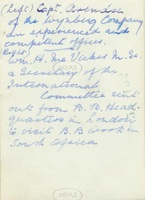 (Left) Capt. Arendse
of the Wynberg Company
an experienced and
competent officer.
(Right)
Wm. H. McVicker M. Sc.
a Secretary of the
International
Committee sent
out from B. B. Head-
quarters in London
to visit B. B. work in
South Africa